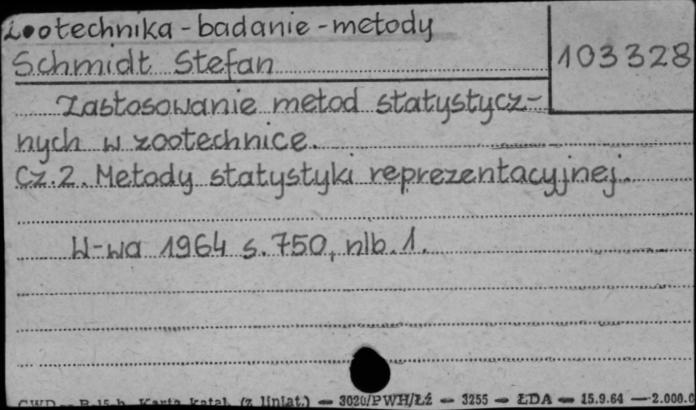 Zootechnika - badanie - metody
Schmidt Stefan
103328
Zastosowanie metod statystycz-
nych w zootechnice.
Cz.2. Metody statystyki reprezentacyjnej.
W-wa 1964 s. 750, nlb. 1.
CWD — B-15 b. Karta katal. (z liniat.) — 3020/PWH/Łź — 3255 — ŁDA — 15.9.64 — 2.000.0